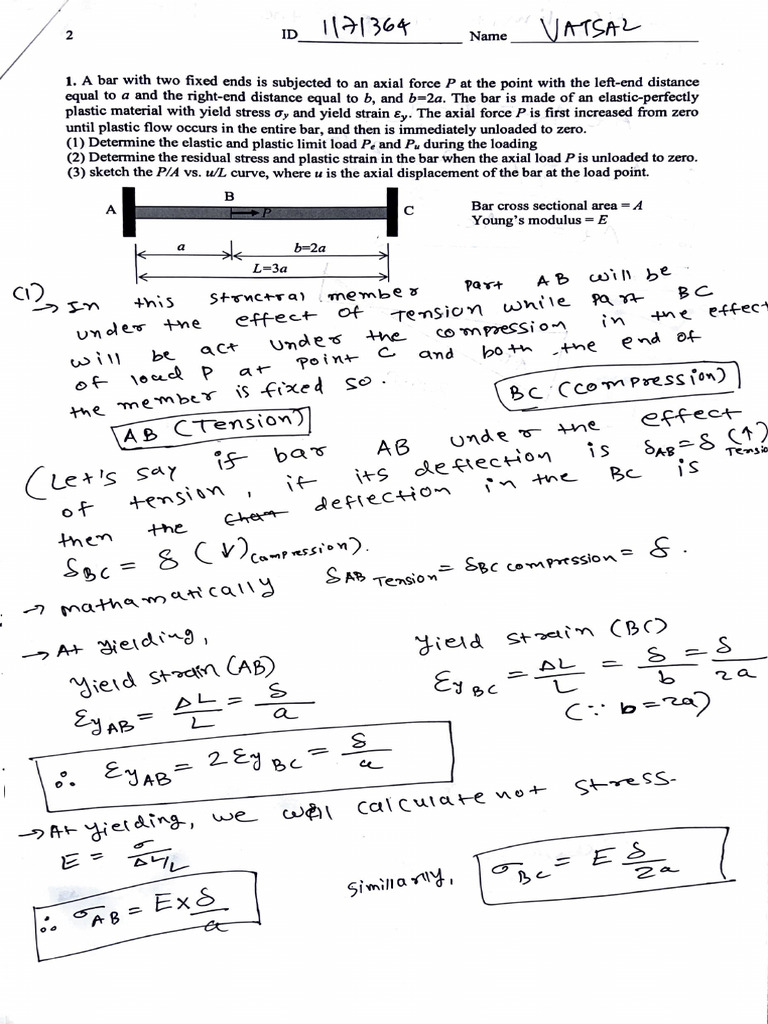 2 ID 1171364 Name VATSAL
1. A bar with two fixed ends is subjected to an axial force P at the point with the left-end distance
equal to a and the right-end distance equal to b, and b=2a. The bar is made of an elastic-perfectly
plastic material with yield stress σy and yield strain εy. The axial force P is first increased from zero
until plastic flow occurs in the entire bar, and then is immediately unloaded to zero.
(1) Determine the elastic and plastic limit load Pe and Pu during the loading
(2) Determine the residual stress and plastic strain in the bar when the axial load P is unloaded to zero.
(3) sketch the P/A vs. u/L curve, where u is the axial displacement of the bar at the load point.
A B P C
Bar cross sectional area = A
Young's modulus = E
a b=2a
L=3a
(1) → In this structral member part AB will be
under the effect of tension while part BC
will be act under the compression in the effect
of load P at point C and both the end of
the member is fixed so.
AB (Tension) BC (compression)
(Let's say if bar AB under the effect
of tension, if its deflection is δAB = δ (↑) Tension
then the deflection in the BC is
δBC = δ (↓) (compression).
→ mathamatically δAB Tension = δBC compression = δ.
→ At yielding,
Yield strain (AB) Yield strain (BC)
εy AB = ΔL/L = δ/a εy BC = ΔL/L = δ/b = δ/2a
(∵ b=2a)
∴ εy AB = 2 εy BC = δ/a
→ At yielding, we will calculate not stress.
E = σ/ΔL/L
∴ σAB = E×δ/a Simillarlly, σBC = E δ/2a